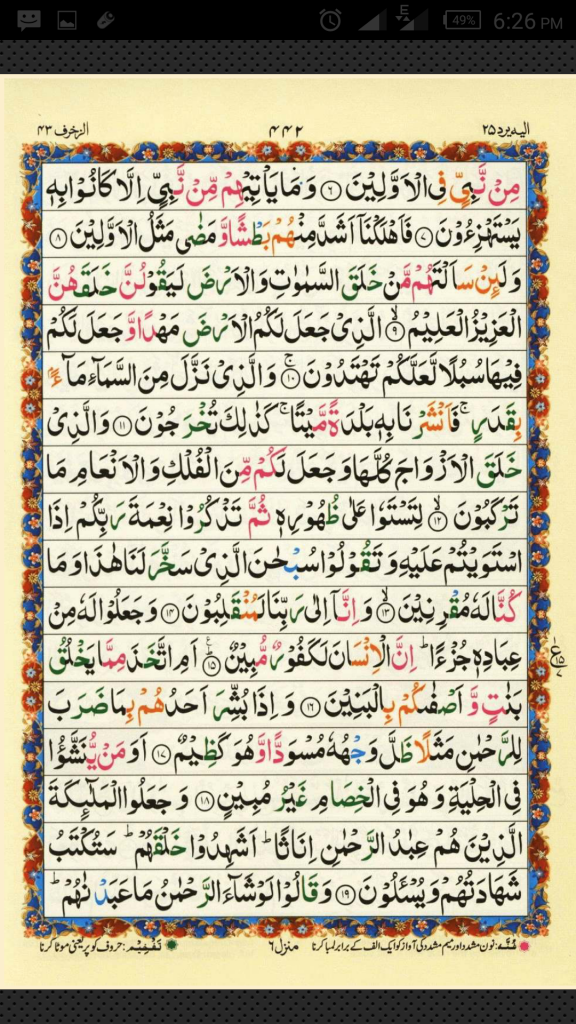 E
49%
6:26 PM
الیه یرد ۲۵
۴۴۲
الزخرف ۴۳
مِنْ نَّبِیٍّ فِی الْاَوَّلِیْنَ ۶ وَمَا یَاْتِیْهِمْ مِّنْ نَّبِیٍّ اِلَّا كَانُوْا بِهٖ
یَسْتَهْزِءُوْنَ ۷ فَاَهْلَكْنَاۤ اَشَدَّ مِنْهُمْ بَطْشًا وَّ مَضٰی مَثَلُ الْاَوَّلِیْنَ ۸
وَلَىِٕنْ سَاَلْتَهُمْ مَّنْ خَلَقَ السَّمٰوٰتِ وَالْاَرْضَ لَیَقُوْلُنَّ خَلَقَهُنَّ
الْعَزِیْزُ الْعَلِیْمُ ۹ۙ الَّذِیْ جَعَلَ لَكُمُ الْاَرْضَ مَهْدًا وَّ جَعَلَ لَكُمْ
فِیْهَا سُبُلًا لَّعَلَّكُمْ تَهْتَدُوْنَ ۱۰ۚ وَالَّذِیْ نَزَّلَ مِنَ السَّمَآءِ مَآءًۢ
بِقَدَرٍۚ فَاَنْشَرْنَا بِهٖ بَلْدَةً مَّیْتًاۚ كَذٰلِكَ تُخْرَجُوْنَ ۱۱ وَالَّذِیْ
خَلَقَ الْاَزْوَاجَ كُلَّهَا وَجَعَلَ لَكُمْ مِّنَ الْفُلْكِ وَالْاَنْعَامِ مَا
تَرْكَبُوْنَ ۱۲ۙ لِتَسْتَوٗا عَلٰی ظُهُوْرِهٖ ثُمَّ تَذْكُرُوْا نِعْمَةَ رَبِّكُمْ اِذَا
اسْتَوَیْتُمْ عَلَیْهِ وَتَقُوْلُوْا سُبْحٰنَ الَّذِیْ سَخَّرَ لَنَا هٰذَا وَمَا
كُنَّا لَهٗ مُقْرِنِیْنَ ۱۳ۙ وَاِنَّاۤ اِلٰی رَبِّنَا لَمُنْقَلِبُوْنَ ۱۴ وَجَعَلُوْا لَهٗ مِنْ
عِبَادِهٖ جُزْءًاؕ اِنَّ الْاِنْسَانَ لَكَفُوْرٌ مُّبِیْنٌ ۱۵ؕ اَمِ اتَّخَذَ مِمَّا یَخْلُقُ
بَنٰتٍ وَّ اَصْفٰىكُمْ بِالْبَنِیْنَ ۱۶ وَاِذَا بُشِّرَ اَحَدُهُمْ بِمَا ضَرَبَ
لِلرَّحْمٰنِ مَثَلًا ظَلَّ وَجْهُهٗ مُسْوَدًّا وَّ هُوَ كَظِیْمٌ ۱۷ اَوَمَنْ یُّنَشَّؤُا
فِی الْحِلْیَةِ وَهُوَ فِی الْخِصَامِ غَیْرُ مُبِیْنٍ ۱۸ وَجَعَلُوا الْمَلٰٓىِٕكَةَ
الَّذِیْنَ هُمْ عِبٰدُ الرَّحْمٰنِ اِنَاثًاؕ اَشَهِدُوْا خَلْقَهُمْؕ سَتُكْتَبُ
شَهَادَتُهُمْ وَیُسْـَٔلُوْنَ ۱۹ وَقَالُوْا لَوْ شَآءَ الرَّحْمٰنُ مَا عَبَدْنٰهُمْؕ
غُنَّہ: نون مشدد اور میم مشدد کی آواز کو ایک الف کے برابر لمبا کرنا
منزل ۶
تَفْخِیْم: حروف کو پُر یعنی موٹا کرنا